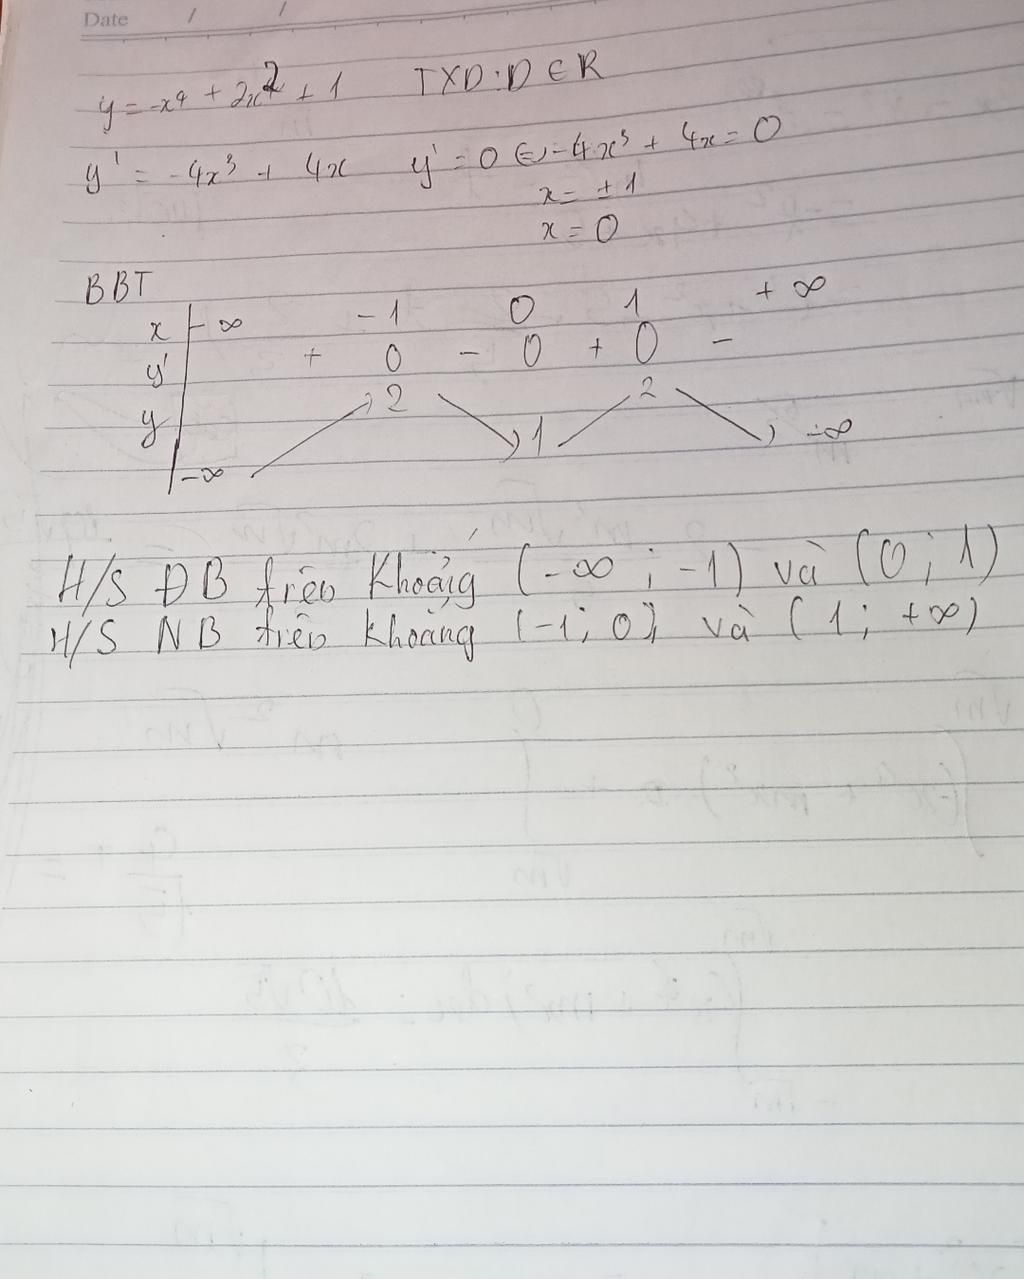 Date / /
y = -x⁴ + 2x² + 1 TXD: D ∈ R
y' = -4x³ + 4x y' = 0 ⇔ -4x³ + 4x = 0
x = ±1
x = 0
BBT
x -∞ -1 0 1 +∞
y' + 0 - 0 + 0 -
y 2 1 2 -∞
-∞
H/S ĐB trên khoảng (-∞; -1) và (0; 1)
H/S NB trên khoảng (-1; 0) và (1; +∞)